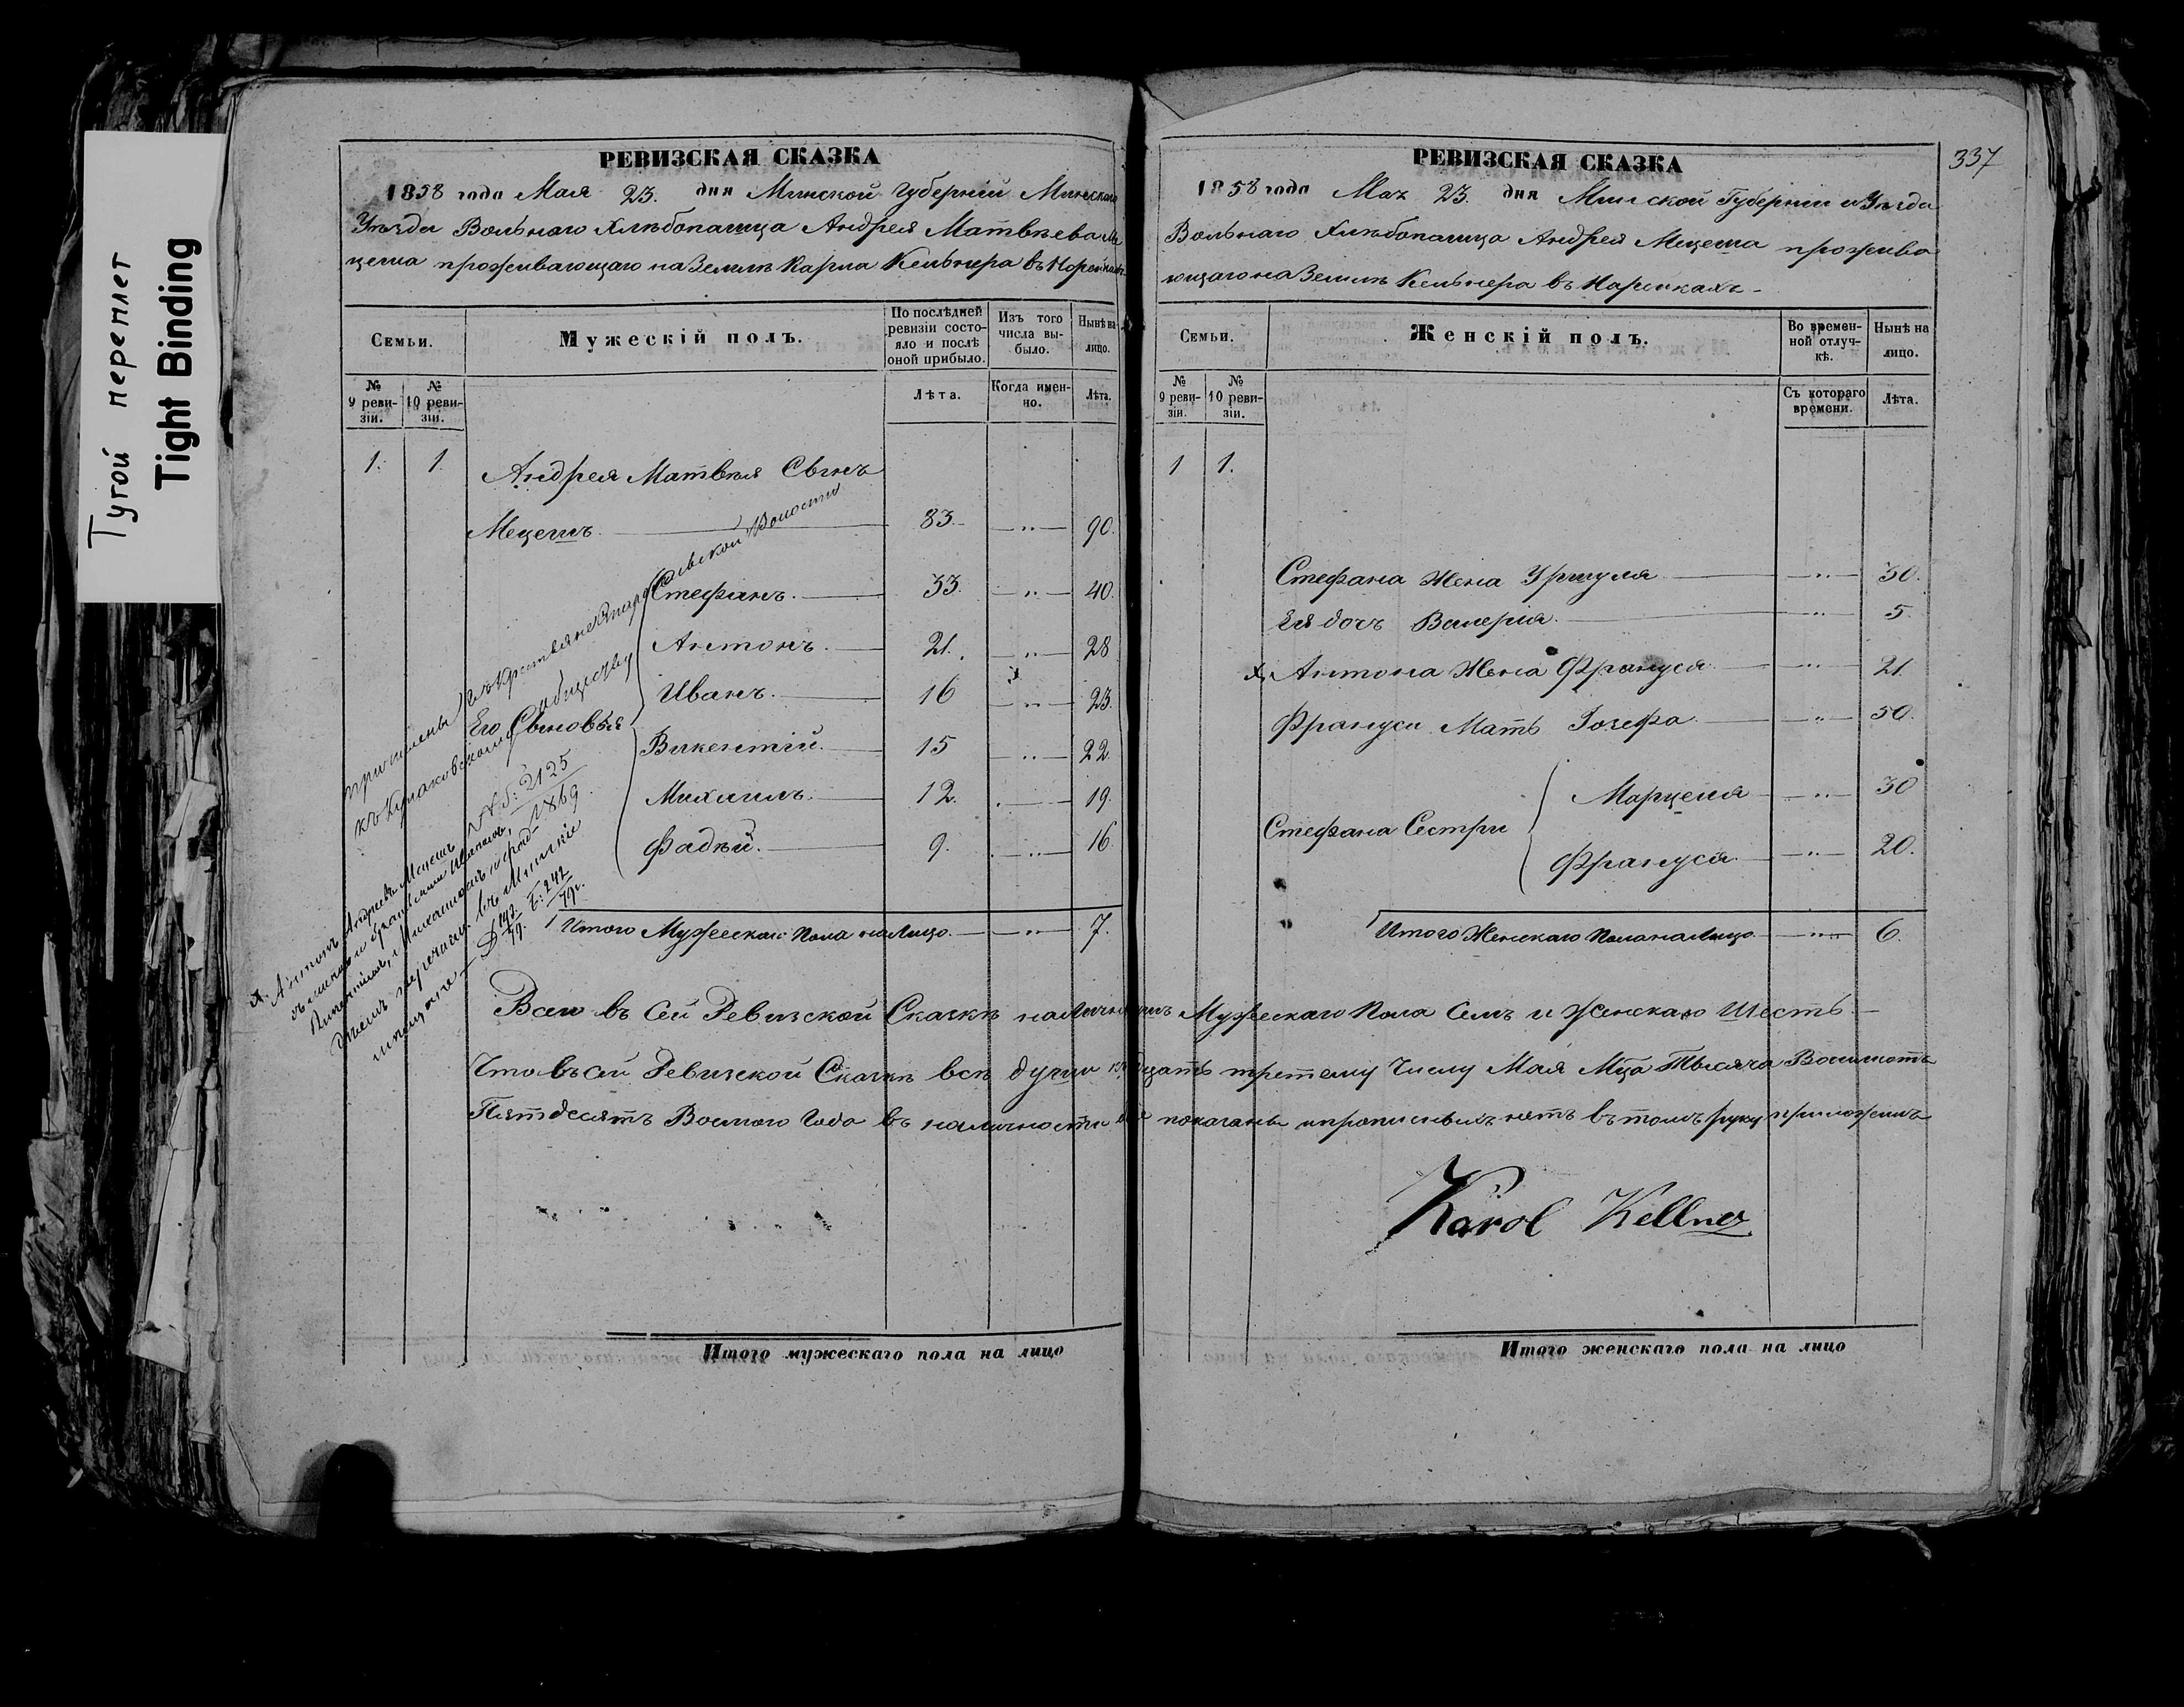 Тугой переплет
Tight Binding
РЕВИЗСКАЯ СКАЗКА
1858 года Мая 23. дня Минской Губерніи Минскаго
Уѣзда Вольнаго Хлѣбопашца Андрея Матвѣева Ме
цеша проживающаго на Землѣ Карла Кельнера въ
Семьи.
Мужескій полъ.
По послѣдней ревизіи состояло и послѣ оной прибыло.
Изъ того числа выбыло.
Нынѣ на лицо.
№ 9 ревизіи.
№ 10 ревизіи.
Лѣта.
Когда именно.
Лѣта.
1. 1. Андрея Матвѣя Сынъ
Мецешъ 83 — „ — 90.
Его Сыновья
Стефанъ. 33. — „ — 40.
Антонъ. 21. — „ — 28
Иванъ. 16 — „ — 23.
Викентій. 15 — „ — 22.
Михаилъ. 12. — „ — 19.
Фадѣй. 9. — „ — 16.
Итого Мужескаго Пола на Лицо. — „ — 7.
причислены
обществу
№: 2125
1869.
х. Антонъ Андреевъ Мецешъ
142
79.
242
79г.
Итого мужескаго пола на лицо
337
РЕВИЗСКАЯ СКАЗКА
1858 года Мая 23. дня Минской Губерніи и Уѣзда
Вольнаго Хлѣбопашца Андрея Мецеша прожива
ющаго на Землѣ Кельнера въ
Семьи.
Женскій полъ.
Во временной отлучкѣ.
Нынѣ на лицо.
№ 9 ревизіи.
№ 10 ревизіи.
Съ котораго времени.
Лѣта.
1 1.
Стефана Жена Уршуля — „ — 30.
Ея дочь Валерія. — „ — 5.
х. Антона Жена Француся — „ — 21.
Француси Мать Іозефа — „ — 50.
Стефана Сестры
Марцеля — „ — 30
Француся — „ — 20.
Итого Женскаго Пола на Лицо — „ — 6.
Всего въ Сей Ревизской Сказкѣ наличныхъ Мужескаго Пола Семь и Женскаго Шесть —
Что въ сей Ревизской Сказкѣ всѣ души къ третему Числу Мая Мца Тысяча Восимсотъ
Пятдесятъ Восмого Года въ наличности всѣ показаны и прописныхъ нетъ въ томъ руку приложилъ
Karol Kellner
Итого женскаго пола на лицо